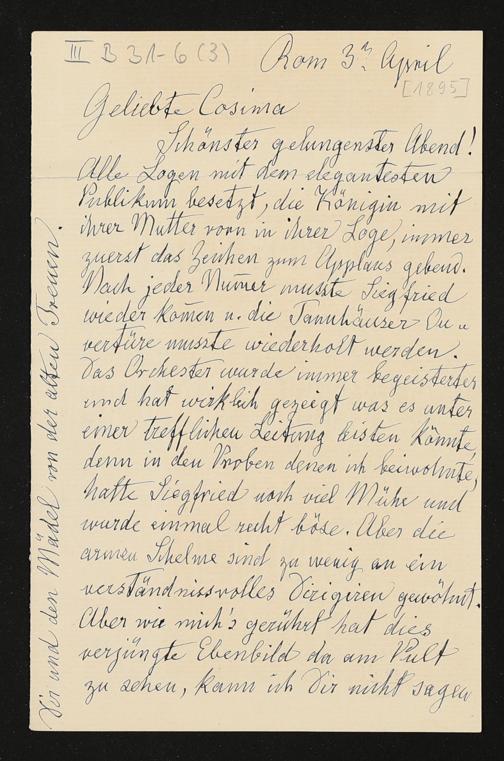 III B 31-6 (3)
Rom 3ⁿ April
[1895]
Geliebte Cosima
Schönster gelungenster Abend!
Alle Logen mit dem elegantesten
Publikum besetzt, die Königin mit
ihrer Mutter vorn in ihrer Loge, immer
zuerst das Zeichen zum Applaus gebend.
Nach jeder Num̄er musste Siegfried
wieder kom̄en u. die Tannhäuser Ou„
vertüre musste wiederholt werden.
Das Orchester wurde immer begeisterter
und hat wirklich gezeigt was es unter
einer trefflichen Leitung leisten könnte,
denn in den Proben denen ich beiwohnte,
hatte Siegfried noch viel Mühe und
wurde einmal recht böse. Aber die
armen Schelme sind zu wenig an ein
verständnissvolles Dirigiren gewöhnt.
Aber wie mich's gerührt hat dies
verjüngte Ebenbild da am Pult
zu sehen, kann ich Dir nicht sagen
Dir und den Mädel von der alten Treuen.